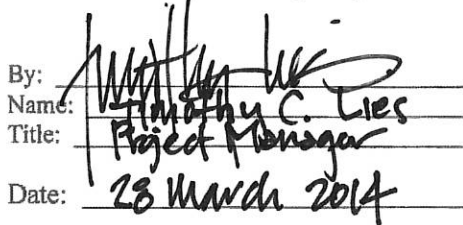 By:
Name: Timothy C. Lies
Title: Project Manager
Date: 28 March 2014